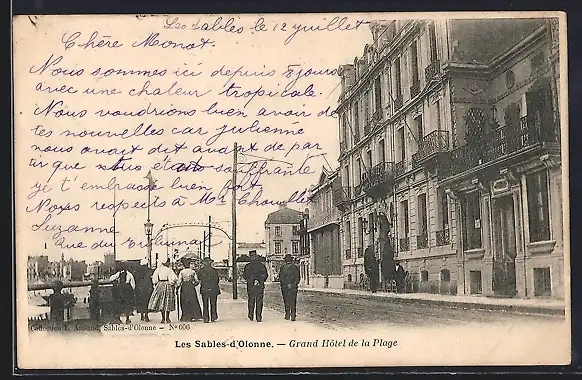 Les Sables le 12 juillet
Chère Monot.
Nous sommes ici depuis 8 jours
avec une chaleur tropicale.
Nous voudrions bien avoir de
tes nouvelles car Julienne
nous avait dit avant de par
tir que tu étais souffrante
je t'embrasse bien fort
Nos respects à Mr
Suzanne
Rue du
Collection L. Amiaud, Sables-d'Olonne – N° 006
Les Sables-d'Olonne. — Grand Hôtel de la Plage